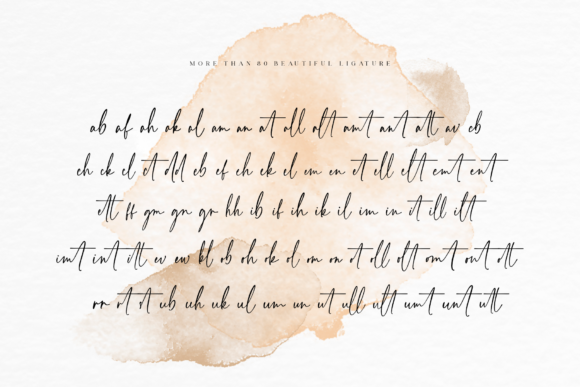 MORE THAN 80 BEAUTIFUL LIGATURE
ab af ah ak al am an at all alt amt ant att av cb
ch ck cl ct dd eb ef eh ek el em en et ell elt emt ent
ett ff gm gn gr hh ib if ih ik il im in it ill ilt
imt int itt iv ev kl ob oh ok ol om on ot oll olt omt ont ott
rr rt st ub uh uk ul um un ut ull ult umt unt utt